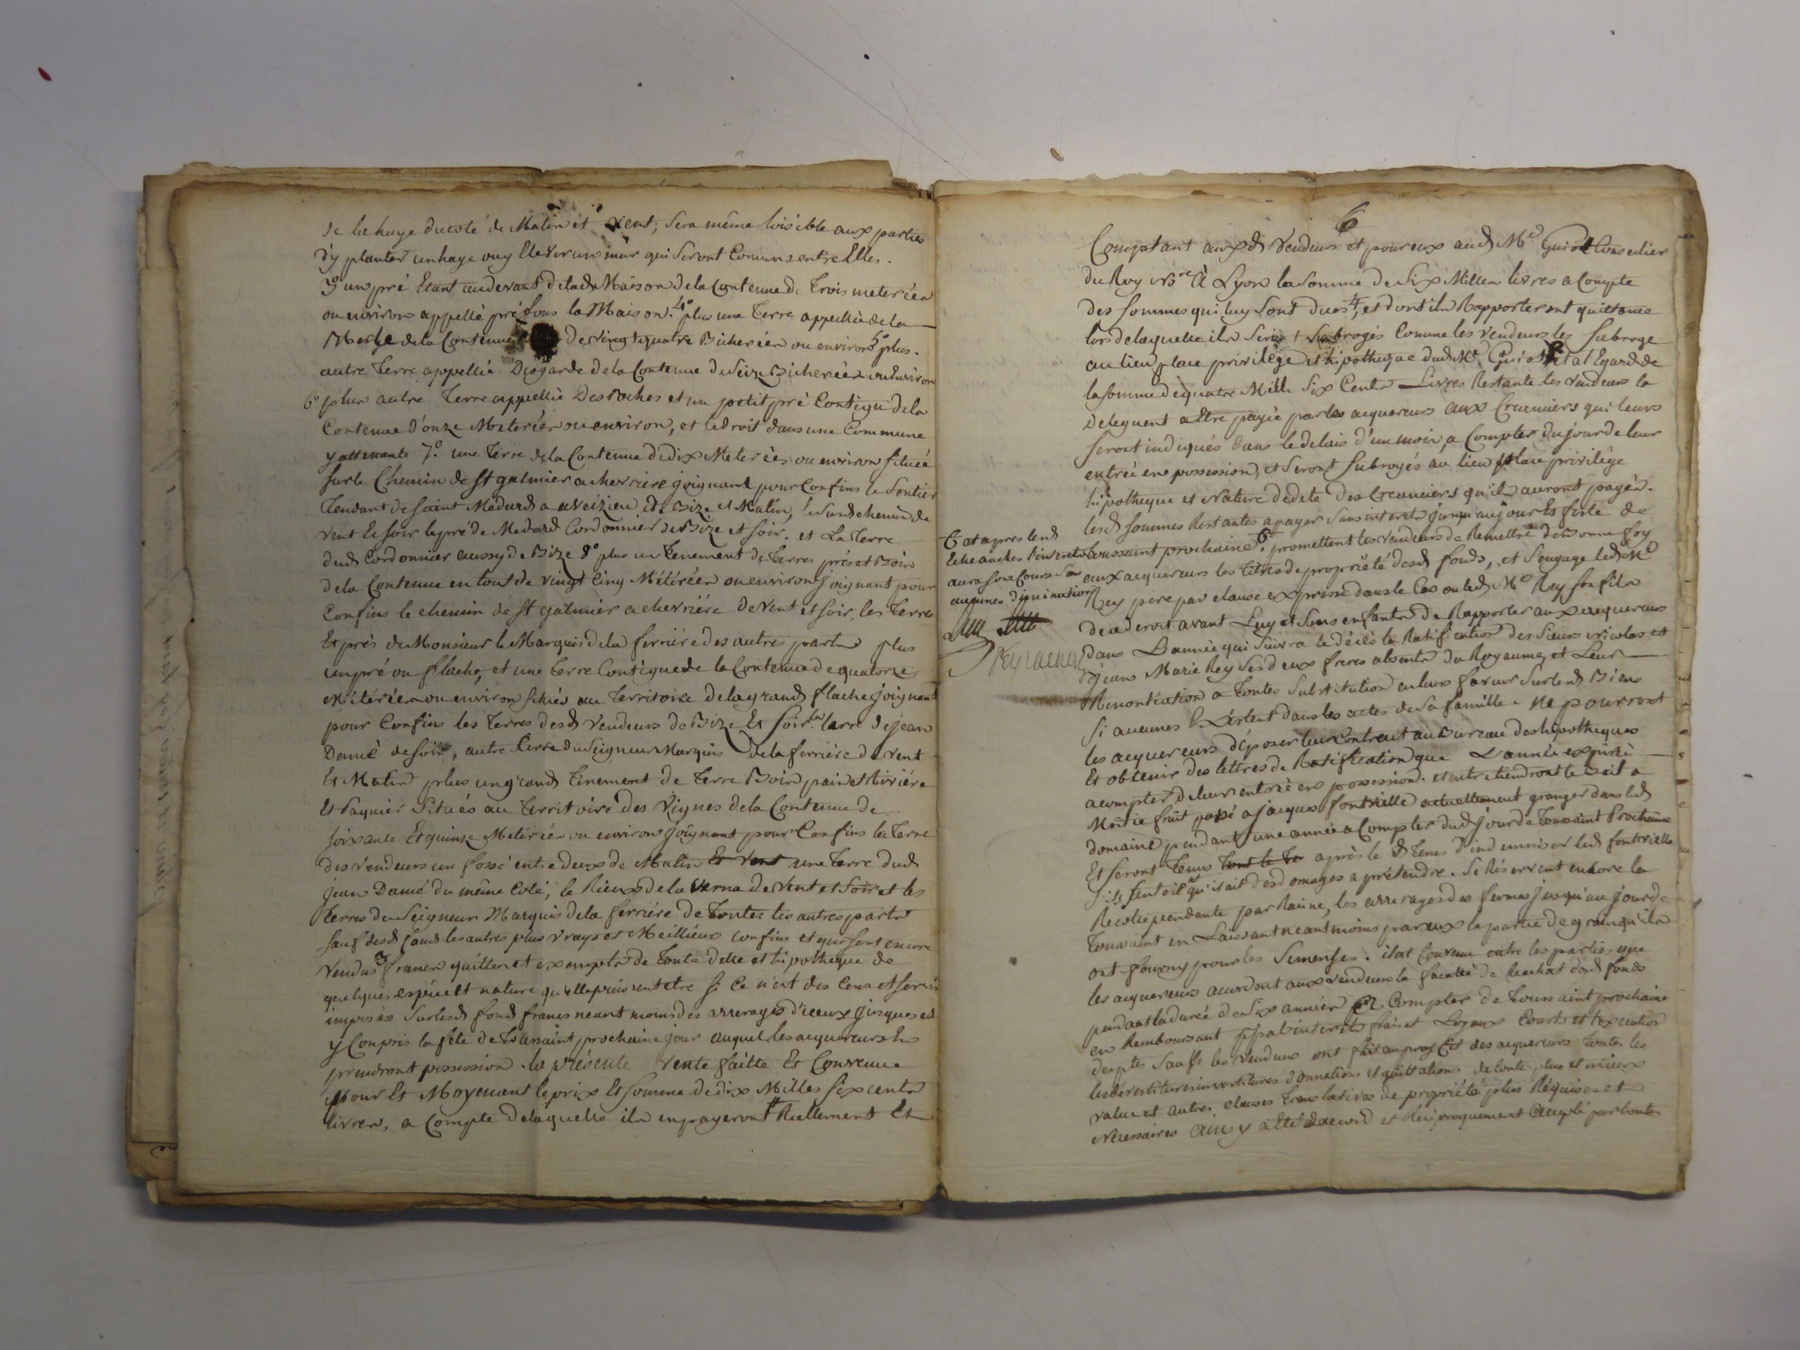 de la haye du coté de Matin et vent, Sera même loisible aux parties
d'y planter un haye ou y Elever un mur qui Seront Comuns entre Elles.
3º un pré Etant au devant de lad. Maison de la Contenue de Trois meterées
ou environ appellé pré Sous la Maison. 4º plus une Terre appellée de la
de la Contenue de vingt quatre Bicherées ou environ 5º plus.
autre Terre appellée Diogarde de la Contenue de Seize Bicherées ou Environ
6º plus autre Terre appellée Des roches et un petit pré Contigu de la
Contenue d'onze Meterées ou environ, et le droit dans une Commune
y attenante 7º une Terre de la Contenue de dix Meterées ou environ Située
Sur le Chemin de St galmier a chevriere joignant pour Confins le Sentier
Tendant de Saint Medard a uveizieu de Bize et Matin, le Susd chemin de
vent Et Soir le pré de Medard Cordonnier de Bize et Soir. et La Terre
dud Cordonnier aussy de Bize 8º plus un Tenement de Terres prés et Bois
de la Contenue en tout de vingt Cinq Métérées ou environ joignant pour
Confins le chemin de St galmier a chevriére de vent et Soir, les Terres
Et prés de Monsieur le Marquis de la ferriére des autres parts plus
un pré ou flache, et une terre Contigue de la Contenue de quatorze
Métérées ou environ Situés au Territoire de la grande flache joignant
pour Confins les Terres desd vendeurs de Bize Et Soir la terre de jean
Damé de Soir, autre Terre du Seigneur Marquis de la ferriére de vent
Et Matin plus un grand Tenement de Terre Bois paire et Riviére
Et Paquier Situés au Territoire des Vignes de la Contenue de
Soixante Et quinze Métérées ou environ joignant pour Confins la Terre
des vendeurs un fossé entre deux de Matin Et Vent une Terre dud
Jean Damé du même Coté, le Rieux de la Verna de Vent et Soir et les
terres du Seigneur Marquis de la ferriére de Toutes les autres parts
Sauf desd fonds les autres plus vrays et Meillieurs confins et qui Sont encore
vendus francs quittes et exempts de Toute dette et hipotheque de
quelques espéce Et nature qu'elle puissent etre Si Ce n'est des Cens et Servis
imposés Sur lesd fonds francs neant moins des arrerages d'iceux jusques et
y Compris la fête de Toussaint prochaine jour auquel les acquereurs En
prendront possession. la présente vente faitte Et Convenue
pour Et Moyenant le prix Et Somme de dix Milles Six cents
livres, a Compte de laquelle ils en payeront Reellement Et
6
Comptant auxd Vendeurs et pour eux aud Me Guiot Conseiller
du Roy à Lyon la Somme de Six Milles livres a Compte
des Sommes qui luy Sont dues, et dont ils Rapporteront quittance
lors de laquelle ils Seront Subrogés Comme les vendeurs les Subroge
au lieu place privilége et hipotheque dud Me Guiot Et a l'Egard de
la Somme de quatre Mille Six Cents Livres Restante les vendeurs la
deleguent a Etre payée par les acquereurs aux Creanciers qui leurs
Seront indiqués dans le delais d'un mois, a Compter du jour de leur
entrée en possession, et Seront Subrogés au lieu place privilége
hipotheque et Nature de dete des Creanciers qu'ils auront payés.
lesd Sommes Restantes a payer Sans interets jusqu'au jour & fête de
Toussaint prochaine. promettent les vendeurs de Remettre de bonne foy
aux acquereurs les titres de propriété desd fonds, et S'engage led Me
Rey pere par clause expresse dans le Cas ou led Me Rey Son fils
decederoit avant Luy et Sans enfants de Rapporter aux acquereurs
dans L'année qui Suivra le décés la Ratification des Sieurs Nicolas et
jean Marie Rey Ses deux freres absents du Royaume et Leur
Renontiation a toutes Substitution en leur faveur Sur lesd Biens
Si aucunes Existent dans les actes de Sa famille. Ne pourront
les acquereurs déposer leur Contrat au Bureau des hipotheques
Et obtenir des lettres de Ratification que L'année expirée
a compter de leur entrée en possession. et entretiendront le Bail a
Moitie fruit passé a jacques fontvielle actuellement granger dans led
domaine pendant une année a Compter dud jour de Toussaint Prochaine
Et Seront Tenus Tout le Te après le d Tems d'indemniser led fontvielle
S'il Sentoit qu'il ait des domages a prétendre. Se Réservent encore la
Recolte pendante par Racine, les arrerages des fermes jusqu'au jour de
Toussaint en Laissant neantmoins par eux la partie de grain qu'ils
ont fourny pour les Semences. il est Convenu entre les parties que
les acquereurs acordent aux vendeurs la faculté de Rachat desd fonds
pendant la durée de Six années a Compter de Toussaint prochaine
en Remboursant pr̃pal interets frais et Loyaux Couts et execution
desptes Sauf: les vendeurs ont fait au proffit des acquereurs toutes les
les dévestitures investitures donnations et quittations de toute plus et mieux
value et autres clauses translatives de propriété plus Réquises et
nécessaires ainsy a Eté acordé et Réciproquement accepté par toutes
Et apres lesd
Echeances l'interet
aura Son Cours San
aucunes diminution